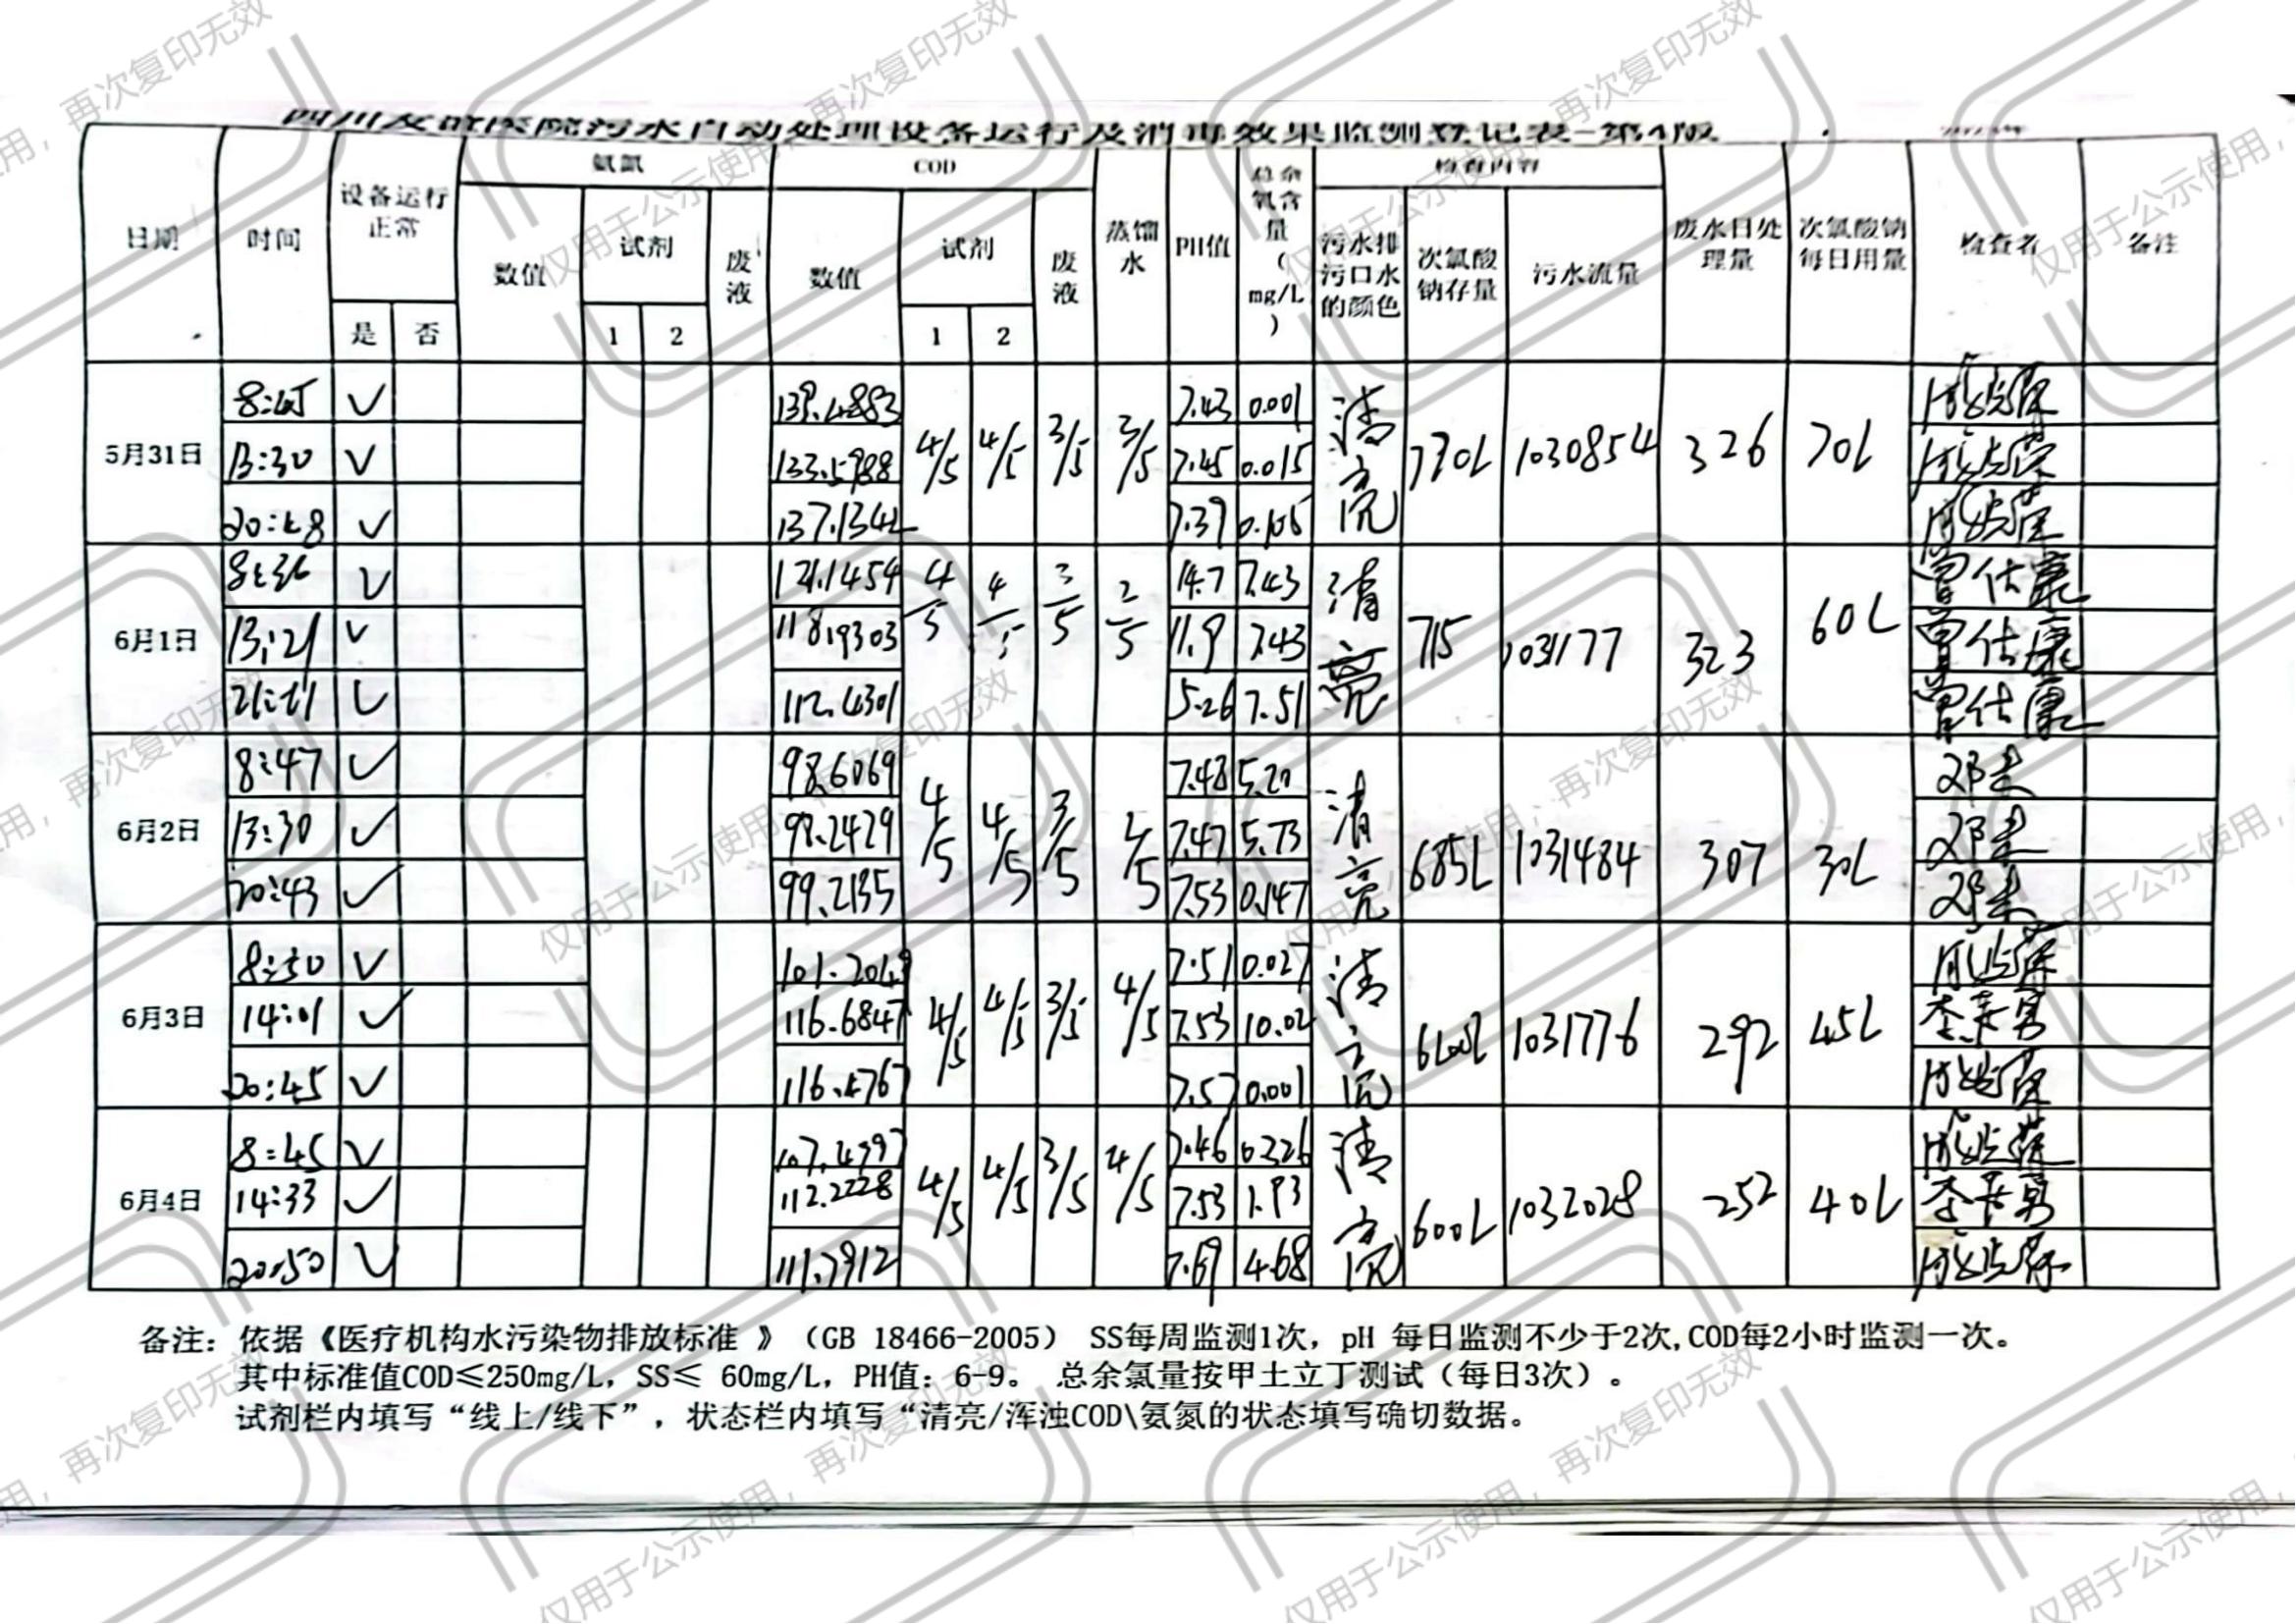 四川友谊医院污水自动处理设备运行及消毒效果监测登记表-第4版
日期 时间 设备运行正常 氨氮 COD 蒸馏水 PH值 总余氧含量(mg/L) 检查内容 废水日处理量 次氯酸钠每日用量 检查者 备注
是 否 数值 试剂 废液 数值 试剂 废液 污水排污口水的颜色 次氯酸钠存量 污水流量
1 2 1 2
5月31日 8:45 ✓ 139.4883 4/5 4/5 3/5 3/5 7.43 0.001 清亮 770L 1030854 326 70L
13:30 ✓ 133.5988 7.45 0.015
20:48 ✓ 137.1342 7.39 0.105
6月1日 8:36 ✓ 121.1454 4/5 4/5 3/5 2/5 14.7 7.43 清亮 715 1031177 323 60L 曾仕康
13:21 ✓ 118.9303 11.9 7.43 曾仕康
21:21 ✓ 112.4301 5.26 7.51 曾仕康
6月2日 8:47 ✓ 98.6069 4/5 4/5 3/5 7.48 5.20 清亮 685L 1031484 307 30L
13:30 ✓ 98.2429 7.47 5.73
20:43 ✓ 99.2135 7.53 0.147
6月3日 8:50 ✓ 101.2049 4/5 4/5 3/5 4/5 7.51 0.027 清亮 640L 1031776 292 45L
14:01 ✓ 116.6847 7.53 10.02
20:45 ✓ 116.4767 7.57 0.001
6月4日 8:45 ✓ 107.4997 4/5 4/5 3/5 4/5 7.46 0.326 清亮 600L 1032028 252 40L
14:33 ✓ 112.2228 7.53 1.93
20:50 ✓ 111.7912 7.69 4.68
备注：依据《医疗机构水污染物排放标准 》（GB 18466-2005） SS每周监测1次，pH 每日监测不少于2次,COD每2小时监测一次。
其中标准值COD≤250mg/L，SS≤ 60mg/L，PH值：6-9。 总余氯量按甲土立丁测试（每日3次）。
试剂栏内填写“线上/线下”，状态栏内填写“清亮/浑浊COD\氨氮的状态填写确切数据。
仅用于公示使用，再次复印无效